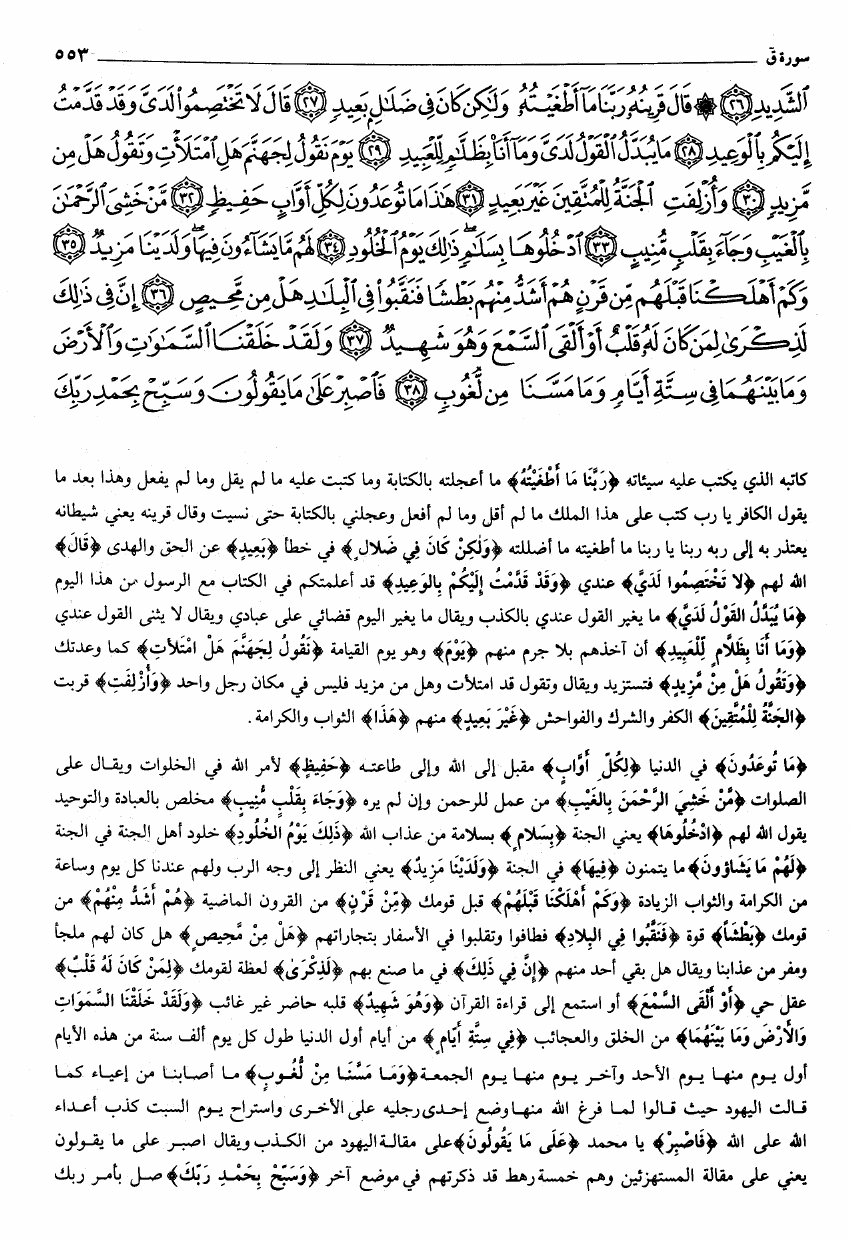 سورة ق ٥٥٣
ٱلشَّدِيدِ ﴿٢٦﴾ ۞ قَالَ قَرِينُهُۥ رَبَّنَا مَآ أَطْغَيْتُهُۥ وَلَٰكِن كَانَ فِى ضَلَٰلٍۭ بَعِيدٍ ﴿٢٧﴾ قَالَ لَا تَخْتَصِمُوا۟ لَدَىَّ وَقَدْ قَدَّمْتُ
إِلَيْكُم بِٱلْوَعِيدِ ﴿٢٨﴾ مَا يُبَدَّلُ ٱلْقَوْلُ لَدَىَّ وَمَآ أَنَا۠ بِظَلَّٰمٍ لِّلْعَبِيدِ ﴿٢٩﴾ يَوْمَ نَقُولُ لِجَهَنَّمَ هَلِ ٱمْتَلَأْتِ وَتَقُولُ هَلْ مِن
مَّزِيدٍ ﴿٣٠﴾ وَأُزْلِفَتِ ٱلْجَنَّةُ لِلْمُتَّقِينَ غَيْرَ بَعِيدٍ ﴿٣١﴾ هَٰذَا مَا تُوعَدُونَ لِكُلِّ أَوَّابٍ حَفِيظٍ ﴿٣٢﴾ مَّنْ خَشِىَ ٱلرَّحْمَٰنَ
بِٱلْغَيْبِ وَجَآءَ بِقَلْبٍ مُّنِيبٍ ﴿٣٣﴾ ٱدْخُلُوهَا بِسَلَٰمٍ ۖ ذَٰلِكَ يَوْمُ ٱلْخُلُودِ ﴿٣٤﴾ لَهُم مَّا يَشَآءُونَ فِيهَا ۖ وَلَدَيْنَا مَزِيدٌ ﴿٣٥﴾
وَكَمْ أَهْلَكْنَا قَبْلَهُم مِّن قَرْنٍ هُمْ أَشَدُّ مِنْهُم بَطْشًا فَنَقَّبُوا۟ فِى ٱلْبِلَٰدِ هَلْ مِن مَّحِيصٍ ﴿٣٦﴾ إِنَّ فِى ذَٰلِكَ
لَذِكْرَىٰ لِمَن كَانَ لَهُۥ قَلْبٌ أَوْ أَلْقَى ٱلسَّمْعَ وَهُوَ شَهِيدٌ ﴿٣٧﴾ وَلَقَدْ خَلَقْنَا ٱلسَّمَٰوَٰتِ وَٱلْأَرْضَ
وَمَا بَيْنَهُمَا فِى سِتَّةِ أَيَّامٍ وَمَا مَسَّنَا مِن لُّغُوبٍ ﴿٣٨﴾ فَٱصْبِرْ عَلَىٰ مَا يَقُولُونَ وَسَبِّحْ بِحَمْدِ رَبِّكَ
كاتبه الذي يكتب عليه سيئاته ﴿رَبَّنَا مَا أَطْغَيْتُهُ﴾ ما أعجلته بالكتابة وما كتبت عليه ما لم يقل وما لم يفعل وهذا بعد ما
يقول الكافر يا رب كتب على هذا الملك ما لم أقل وما لم أفعل وعجلني بالكتابة حتى نسيت وقال قرينه يعني شيطانه
يعتذر به إلى ربه ربنا يا ربنا ما أطغيته ما أضللته ﴿وَلٰكِنْ كَانَ فِي ضَلالٍ﴾ في خطأ ﴿بَعِيدٍ﴾ عن الحق والهدى ﴿قَالَ﴾
الله لهم ﴿لا تَخْتَصِمُوا لَدَيَّ﴾ عندي ﴿وَقَدْ قَدَّمْتُ إِلَيْكُمْ بِالوَعِيدِ﴾ قد أعلمتكم في الكتاب مع الرسول من هذا اليوم
﴿مَا يُبَدَّلُ القَوْلُ لَدَيَّ﴾ ما يغير القول عندي بالكذب ويقال ما يغير اليوم قضائي على عبادي ويقال لا يثنى القول عندي
﴿وَمَا أَنَا بِظَلَّامٍ لِلْعَبِيدِ﴾ أن آخذهم بلا جرم منهم ﴿يَوْمَ﴾ وهو يوم القيامة ﴿نَقُولُ لِجَهَنَّمَ هَلْ امْتَلأتِ﴾ كما وعدتك
﴿وَتَقُولُ هَلْ مِنْ مَّزِيدٍ﴾ فتستزيد ويقال وتقول قد امتلأت وهل من مزيد فليس في مكان رجل واحد ﴿وَأُزْلِفَتِ﴾ قربت
﴿الجَنَّةُ لِلْمُتَّقِينَ﴾ الكفر والشرك والفواحش ﴿غَيْرَ بَعِيدٍ﴾ منهم ﴿هَذَا﴾ الثواب والكرامة.
﴿مَا تُوعَدُونَ﴾ في الدنيا ﴿لِكُلِّ أَوَّابٍ﴾ مقبل إلى الله وإلى طاعته ﴿حَفِيظٍ﴾ لأمر الله في الخلوات ويقال على
الصلوات ﴿مَّنْ خَشِيَ الرَّحْمَنَ بِالغَيْبِ﴾ من عمل للرحمن وإن لم يره ﴿وَجَاءَ بِقَلْبٍ مُّنِيبٍ﴾ مخلص بالعبادة والتوحيد
يقول الله لهم ﴿ادْخُلُوهَا﴾ يعني الجنة ﴿بِسَلامٍ﴾ بسلامة من عذاب الله ﴿ذَلِكَ يَوْمُ الخُلُودِ﴾ خلود أهل الجنة في الجنة
﴿لَهُمْ مَا يَشَاؤونَ﴾ ما يتمنون ﴿فِيهَا﴾ في الجنة ﴿وَلَدَيْنَا مَزِيدٌ﴾ يعني النظر إلى وجه الرب ولهم عندنا كل يوم وساعة
من الكرامة والثواب الزيادة ﴿وَكَمْ أَهْلَكْنَا قَبْلَهُمْ﴾ قبل قومك ﴿مِّنْ قَرْنٍ﴾ من القرون الماضية ﴿هُمْ أَشَدُّ مِنْهُمْ﴾ من
قومك ﴿بَطْشاً﴾ قوة ﴿فَنَقَّبُوا فِي البِلادِ﴾ فطافوا وتقلبوا في الأسفار بتجاراتهم ﴿هَلْ مِنْ مَّحِيصٍ﴾ هل كان لهم ملجأ
ومفر من عذابنا ويقال هل بقي أحد منهم ﴿إِنَّ فِي ذَلِكَ﴾ في ما صنع بهم ﴿لَذِكْرَىٰ﴾ لعظة لقومك ﴿لِمَنْ كَانَ لَهُ قَلْبٌ﴾
عقل حي ﴿أَوْ أَلْقَى السَّمْعَ﴾ أو استمع إلى قراءة القرآن ﴿وَهُوَ شَهِيدٌ﴾ قلبه حاضر غير غائب ﴿وَلَقَدْ خَلَقْنَا السَّمَوَاتِ
وَالأَرْضَ وَمَا بَيْنَهُمَا﴾ من الخلق والعجائب ﴿فِي سِتَّةِ أَيَّامٍ﴾ من أيام أول الدنيا طول كل يوم ألف سنة من هذه الأيام
أول يوم منها يوم الأحد وآخر يوم منها يوم الجمعة ﴿وَمَا مَسَّنَا مِنْ لُّغُوبٍ﴾ ما أصابنا من إعياء كما
قالت اليهود حيث قالوا لما فرغ الله منها وضع إحدى رجليه على الأخرى واستراح يوم السبت كذب أعداء
الله على الله ﴿فَاصْبِرْ﴾ يا محمد ﴿عَلَى مَا يَقُولُونَ﴾ على مقالة اليهود من الكذب ويقال اصبر على ما يقولون
يعني على مقالة المستهزئين وهم خمسة رهط قد ذكرتهم في موضع آخر ﴿وَسَبِّحْ بِحَمْدِ رَبِّكَ﴾ صل بأمر ربك